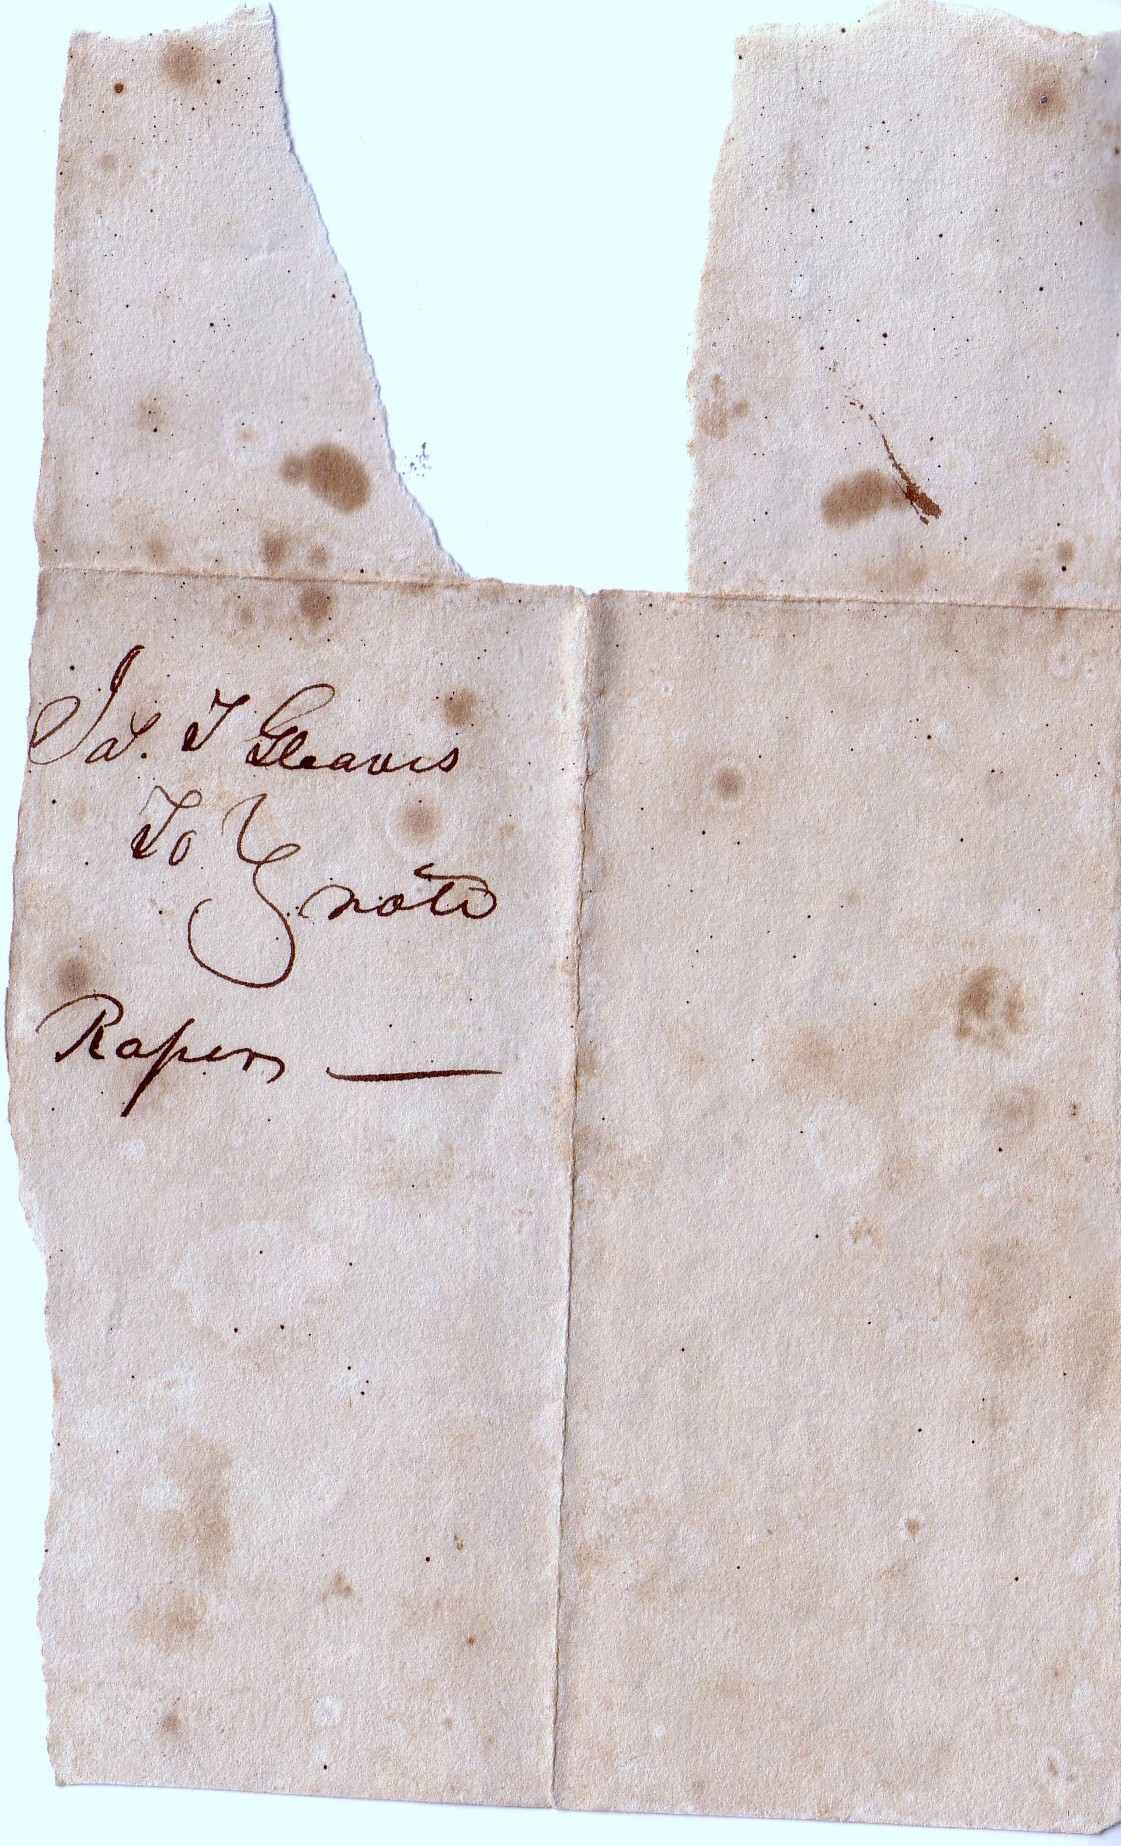 Jas. T Gleaves
To
note
Raper